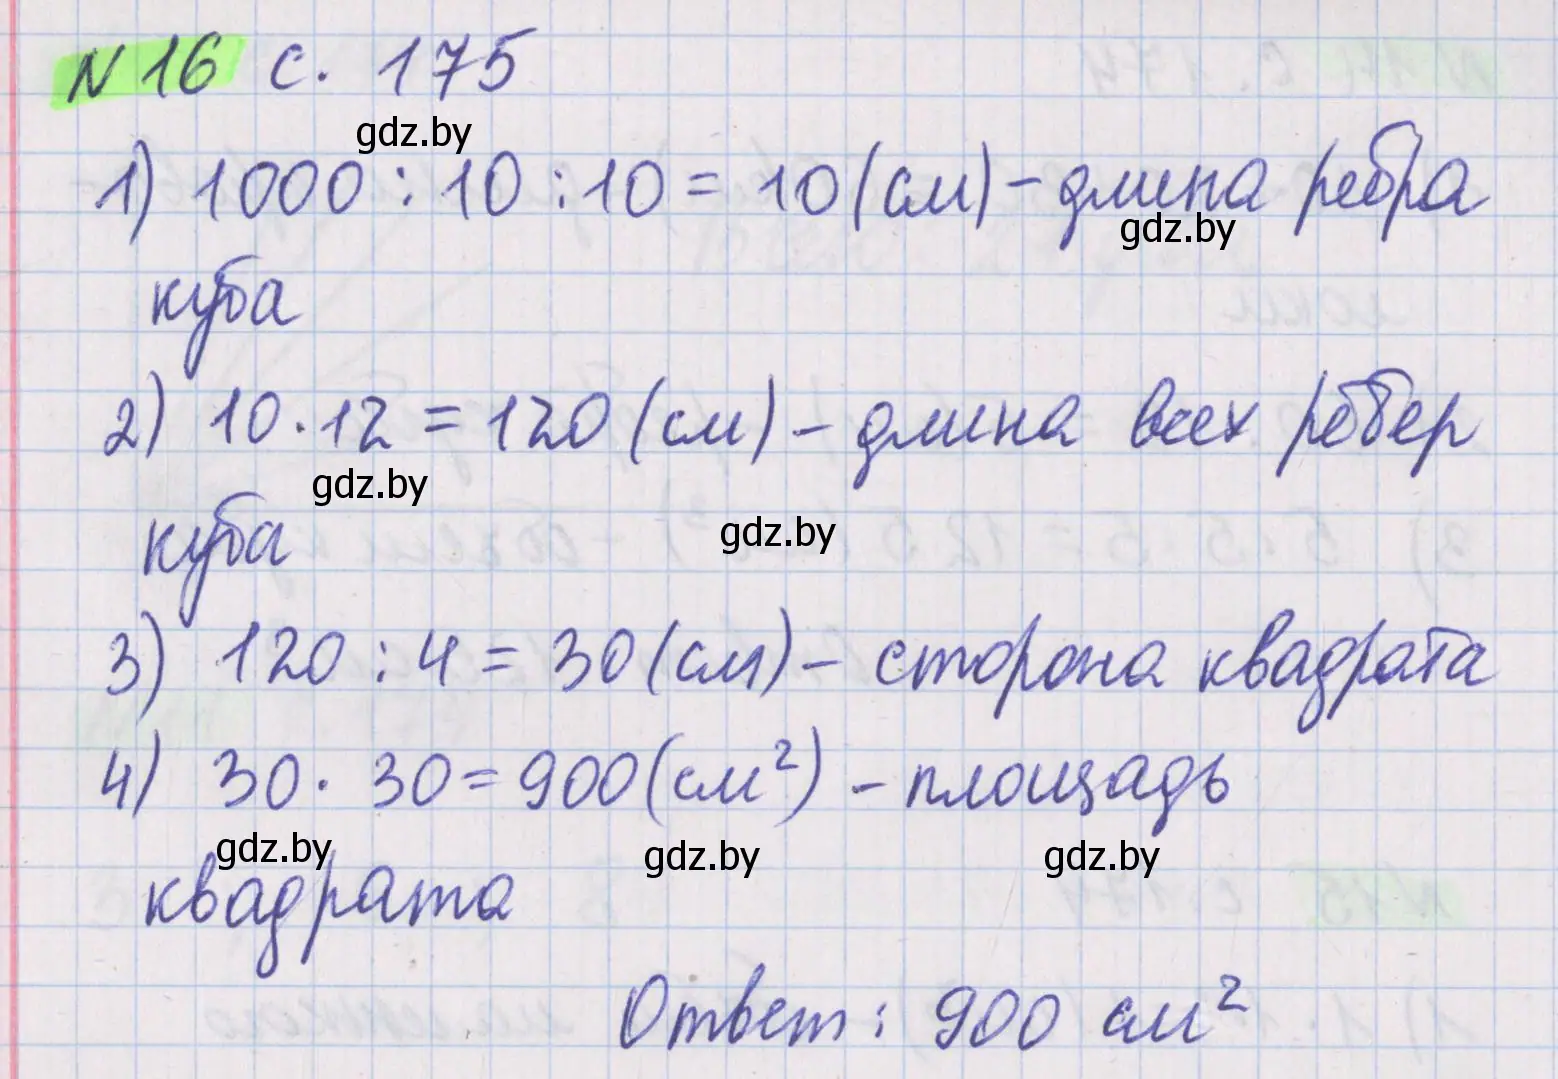 №16 с. 175
gdz.by
1) 1000 : 10 : 10 = 10 (см) – длина ребра
gdz.by
куба
2) 10 · 12 = 120 (см) – длина всех рёбер
gdz.by
gdz.by
куба
3) 120 : 4 = 30 (см) – сторона квадрата
4) 30 · 30 = 900 (см²) – площадь
gdz.by gdz.by gdz.by
квадрата
Ответ: 900 см²